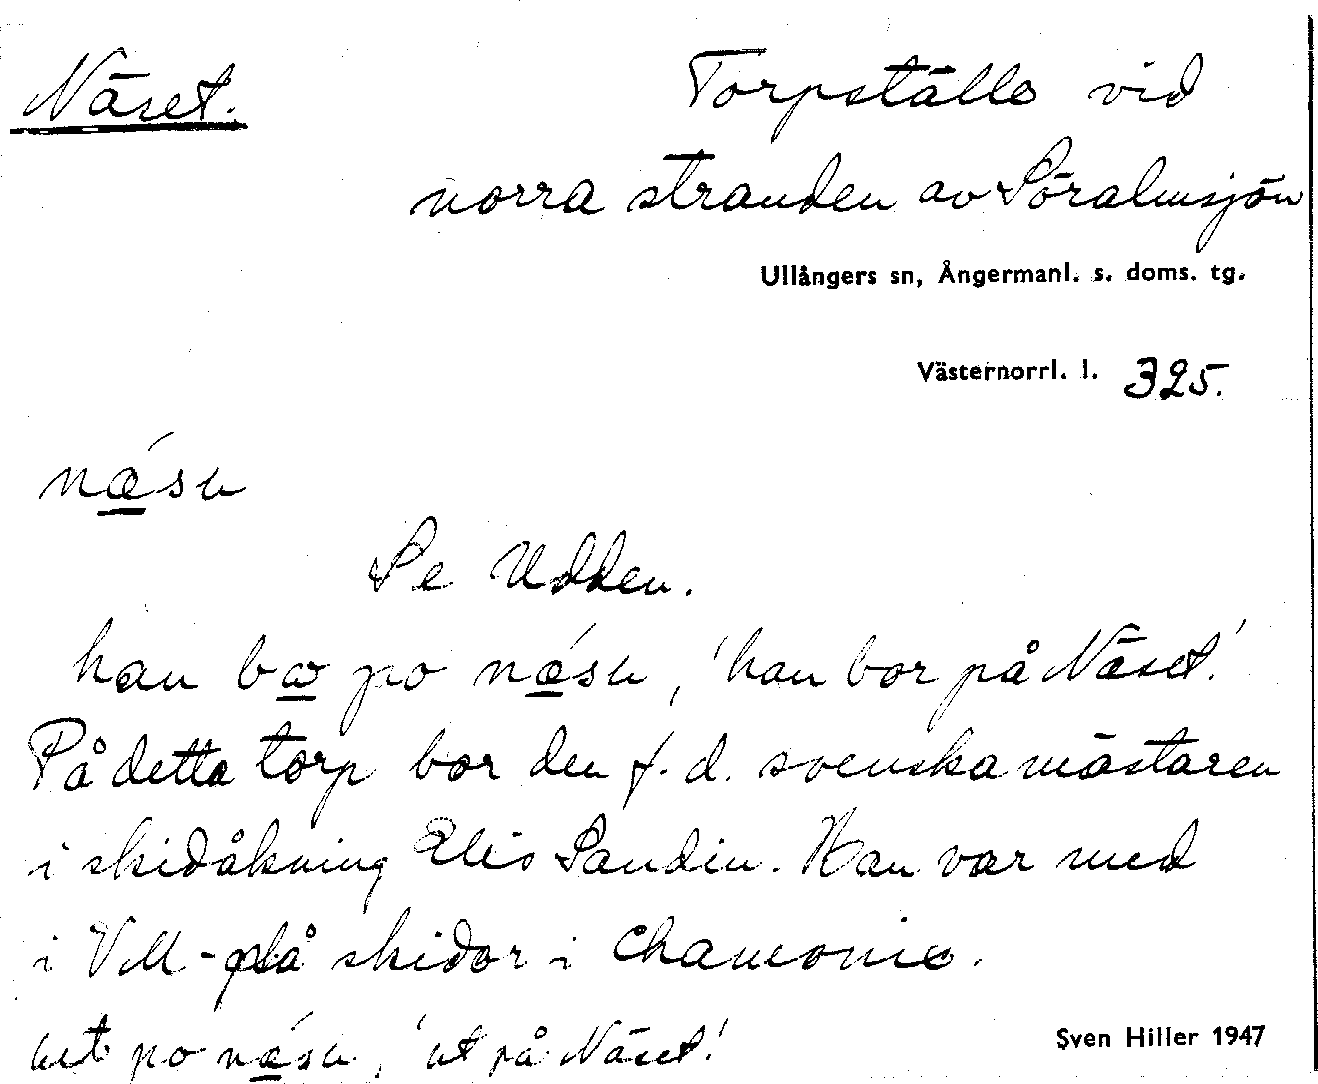 Näset. Torpställe vid
norra stranden av Söralmsjön
Ullångers sn, Ångermanl. s. doms. tg.
Västernorrl. l. 325.
næ´su
Se Udden.
han bω po næ´su, 'han bor på Näset.'
På detta torp bor den f. d. svenska mästaren
i skidåkning Elis Sandin. Han var med
i VM-på skidor i Chamonie.
ut po næ´su, 'ut på Näset.'
Sven Hiller 1947